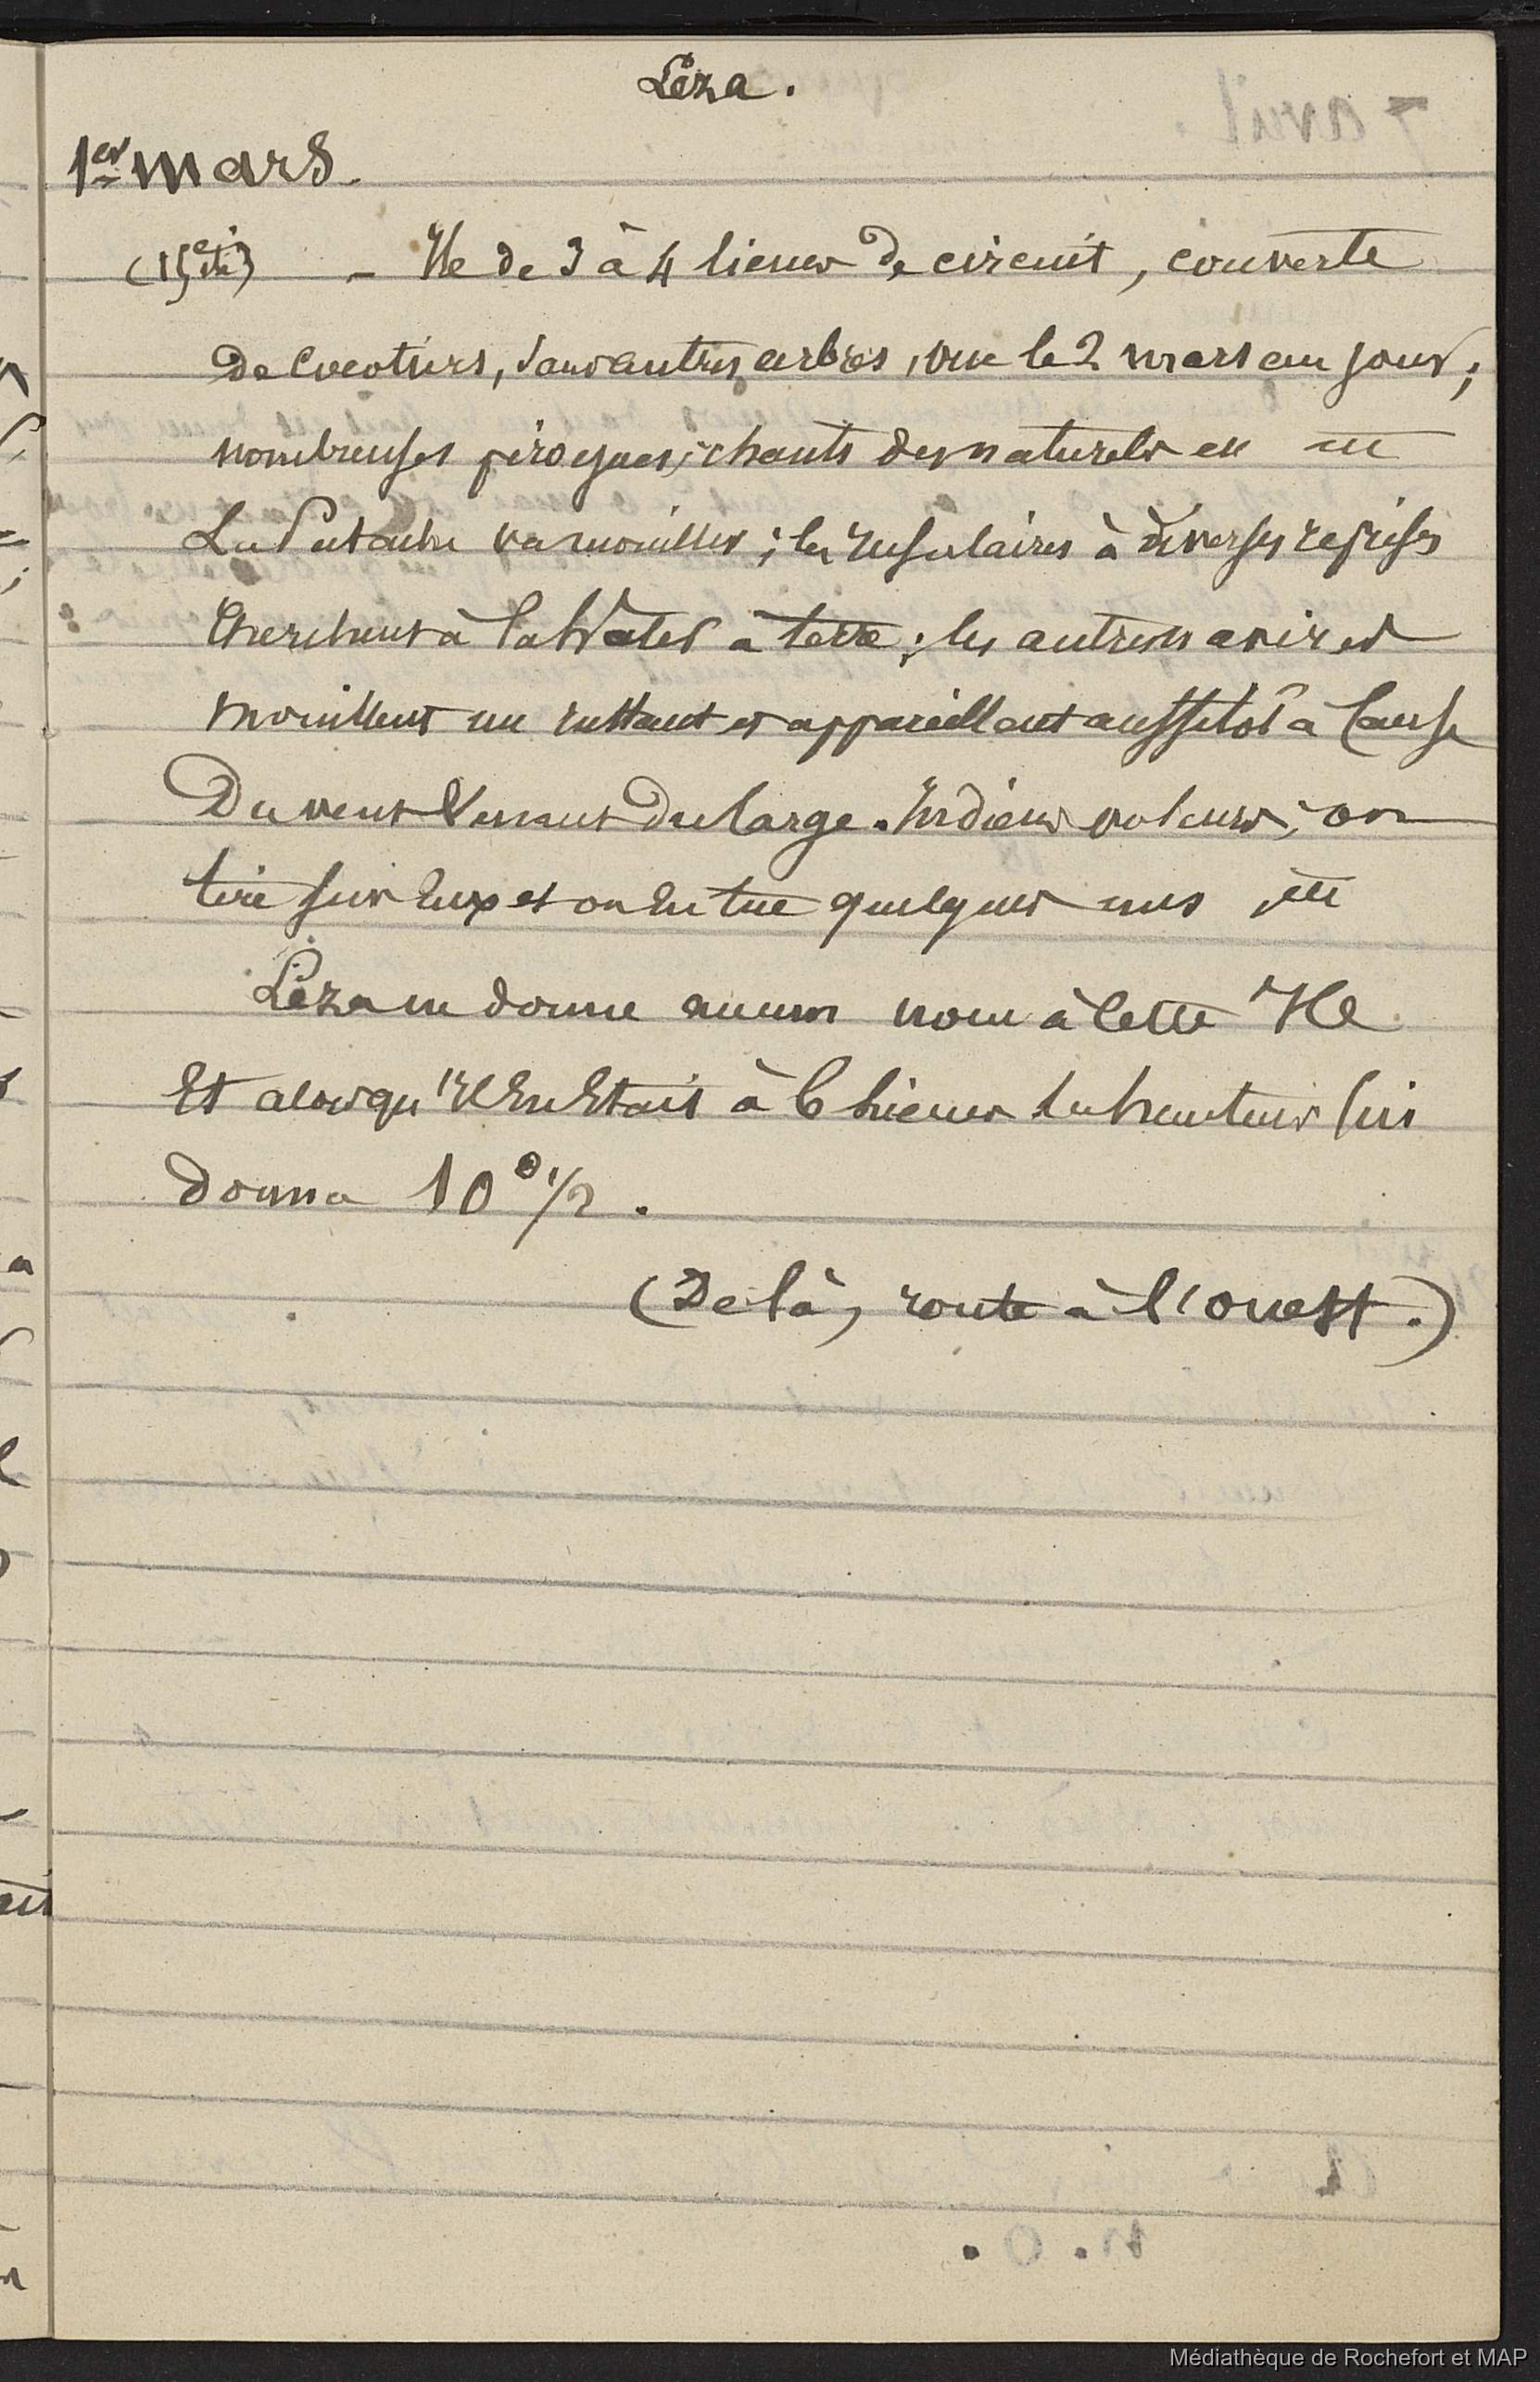 Léza.
1er mars.
- Ile de 3 à 4 lieues de circuit, couverte
de cocotiers, sans autres arbres, vue le 2 mars au jour;
nombreuses pirogues; chants des naturels etc etc
La va mouiller; les insulaires à diverses reprises
cherchent à la hâler à terre; les autres navires
mouillent un instant et appareillent aussitôt à cause
Du vent venant du large. Indiens voleurs; on
tire sur eux et on en tue quelques uns, etc
Léza ne donne aucun nom à cette Ile
Et alors qu'il en était à 6 lieues la hauteur lui
donna 10° 1/2.
(De là, route à l'ouest.)
Médiathèque de Rochefort et MAP